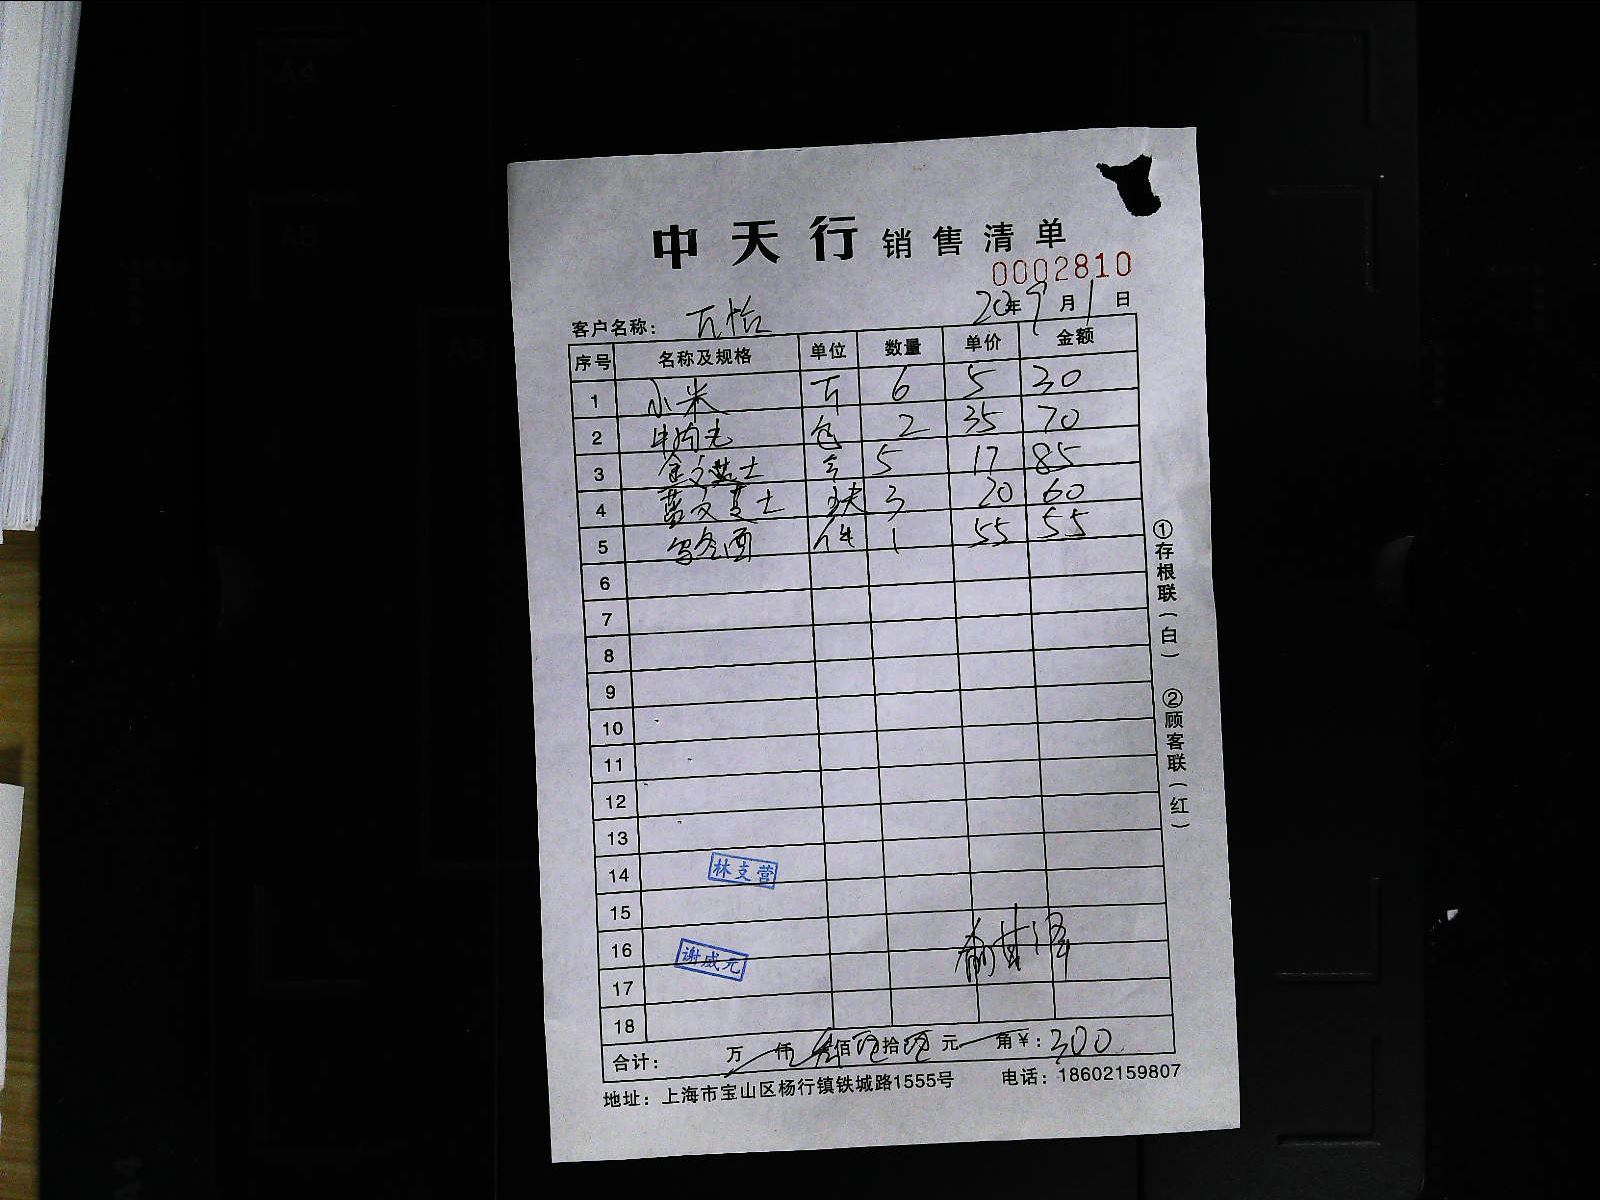 中天行 销售清单
0002810
20年9月1日
客户名称：
序号 名称及规格 单位 数量 单价 金额
1 小米 斤 6 5 30
2 包 2 35 70
3 5 17 85
4 蓝文芝士 块 3 20 60
5 件 1 55 55
6
7
8
9
10
11
12
13
14 林支营
15
16 谢威元
17
18
合计： 万 仟 叁佰 零拾 零元 角 ¥：300
地址：上海市宝山区杨行镇铁城路1555号 电话：18602159807
①存根联（白） ②顾客联（红）